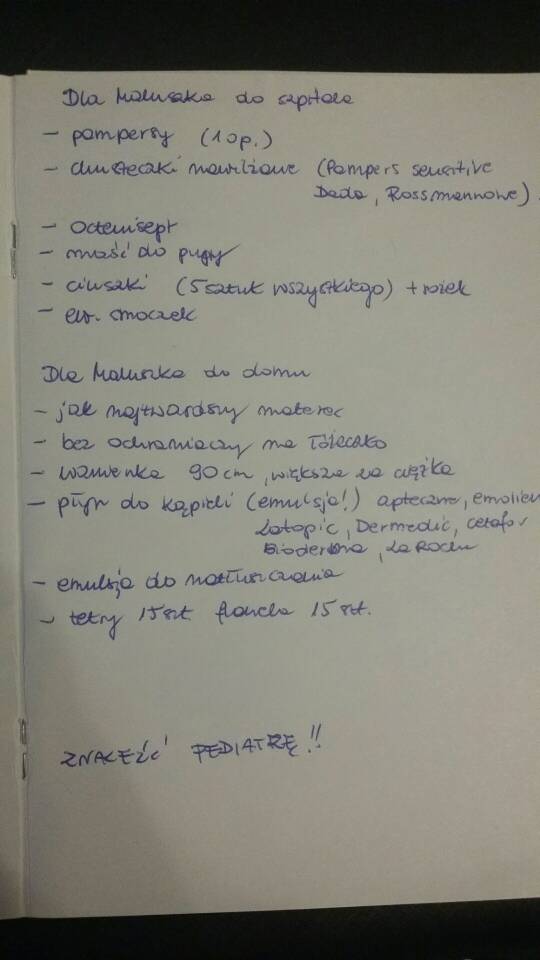 Dla Maluszka do szpitala
- pampersy (10p.)
- chusteczki nawilżane (Pampers sensitive
Dada, Rossmannowe)
- Octenisept
- maść do pupy
- ciuszki (5 sztuk wszystkiego) + rożek
- ew. smoczek
Dla Maluszka do domu
- jak najtwardszy materac
- bez ochraniaczy na łóżeczko
- wanienka 90 cm, większa za ciężka
- płyn do kąpieli (emulsja!) apteczne, emolien
Latopic, Dermedic, cetafor
Bioderma, La Roche
- emulsja do natłuszczania
- tetry 15 szt. flanela 15 szt.
ZNALEŹĆ PEDIATRĘ!!